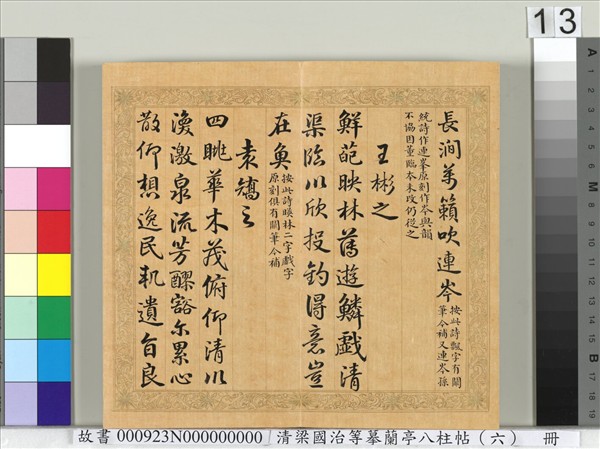 長澗萬籟吹連岑
按此詩飄字有闕
筆今補又連岑孫
統詩作連峯原刻作岑與韻
不協因董臨本未改仍從之
王彬之
鮮葩映林薄遊鱗戲清
渠臨川欣投釣得意豈
在魚
按此詩映林二字戲字
原刻俱有闕筆今補
袁嶠之
四眺華木茂俯仰清川
渙激泉流芳醪豁尔累心
散仰想逸民軌遺音良
13
故書 000923N000000000 清梁國治等摹蘭亭八柱帖（六） 冊